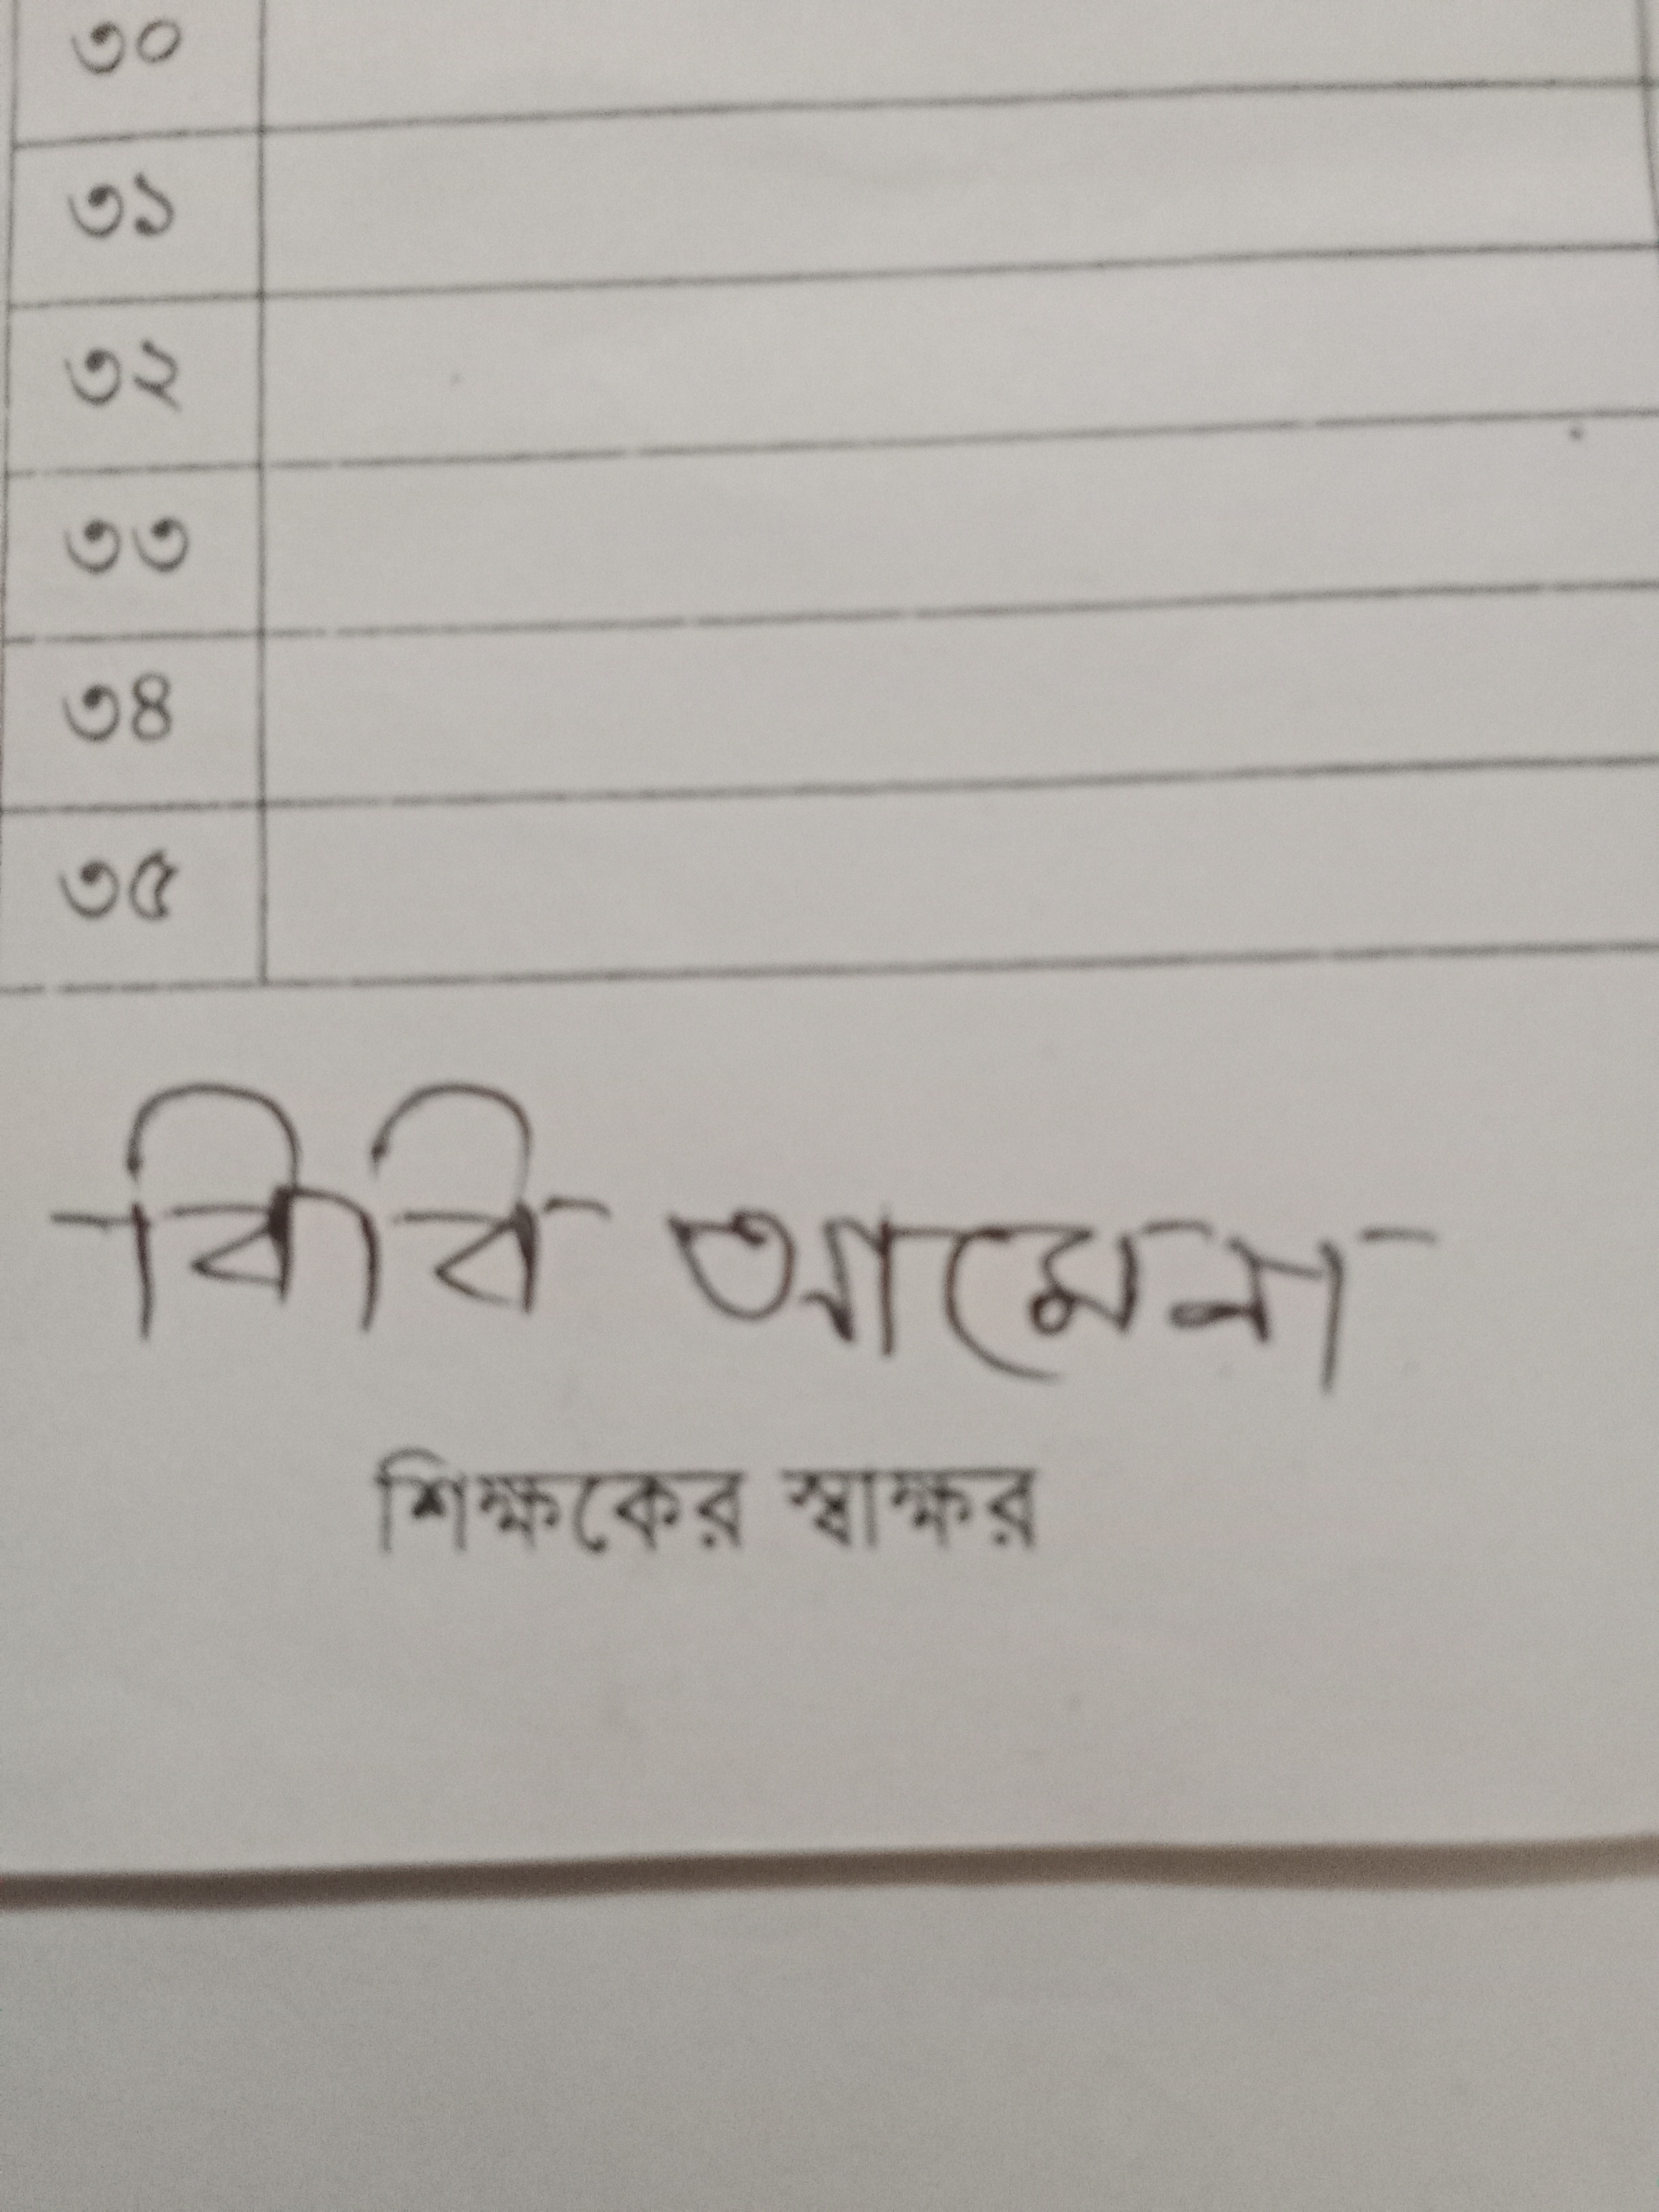 ৩০
৩১
৩২
৩৩
৩৪
৩৫
বিবি আমেনা
শিক্ষকের স্বাক্ষর